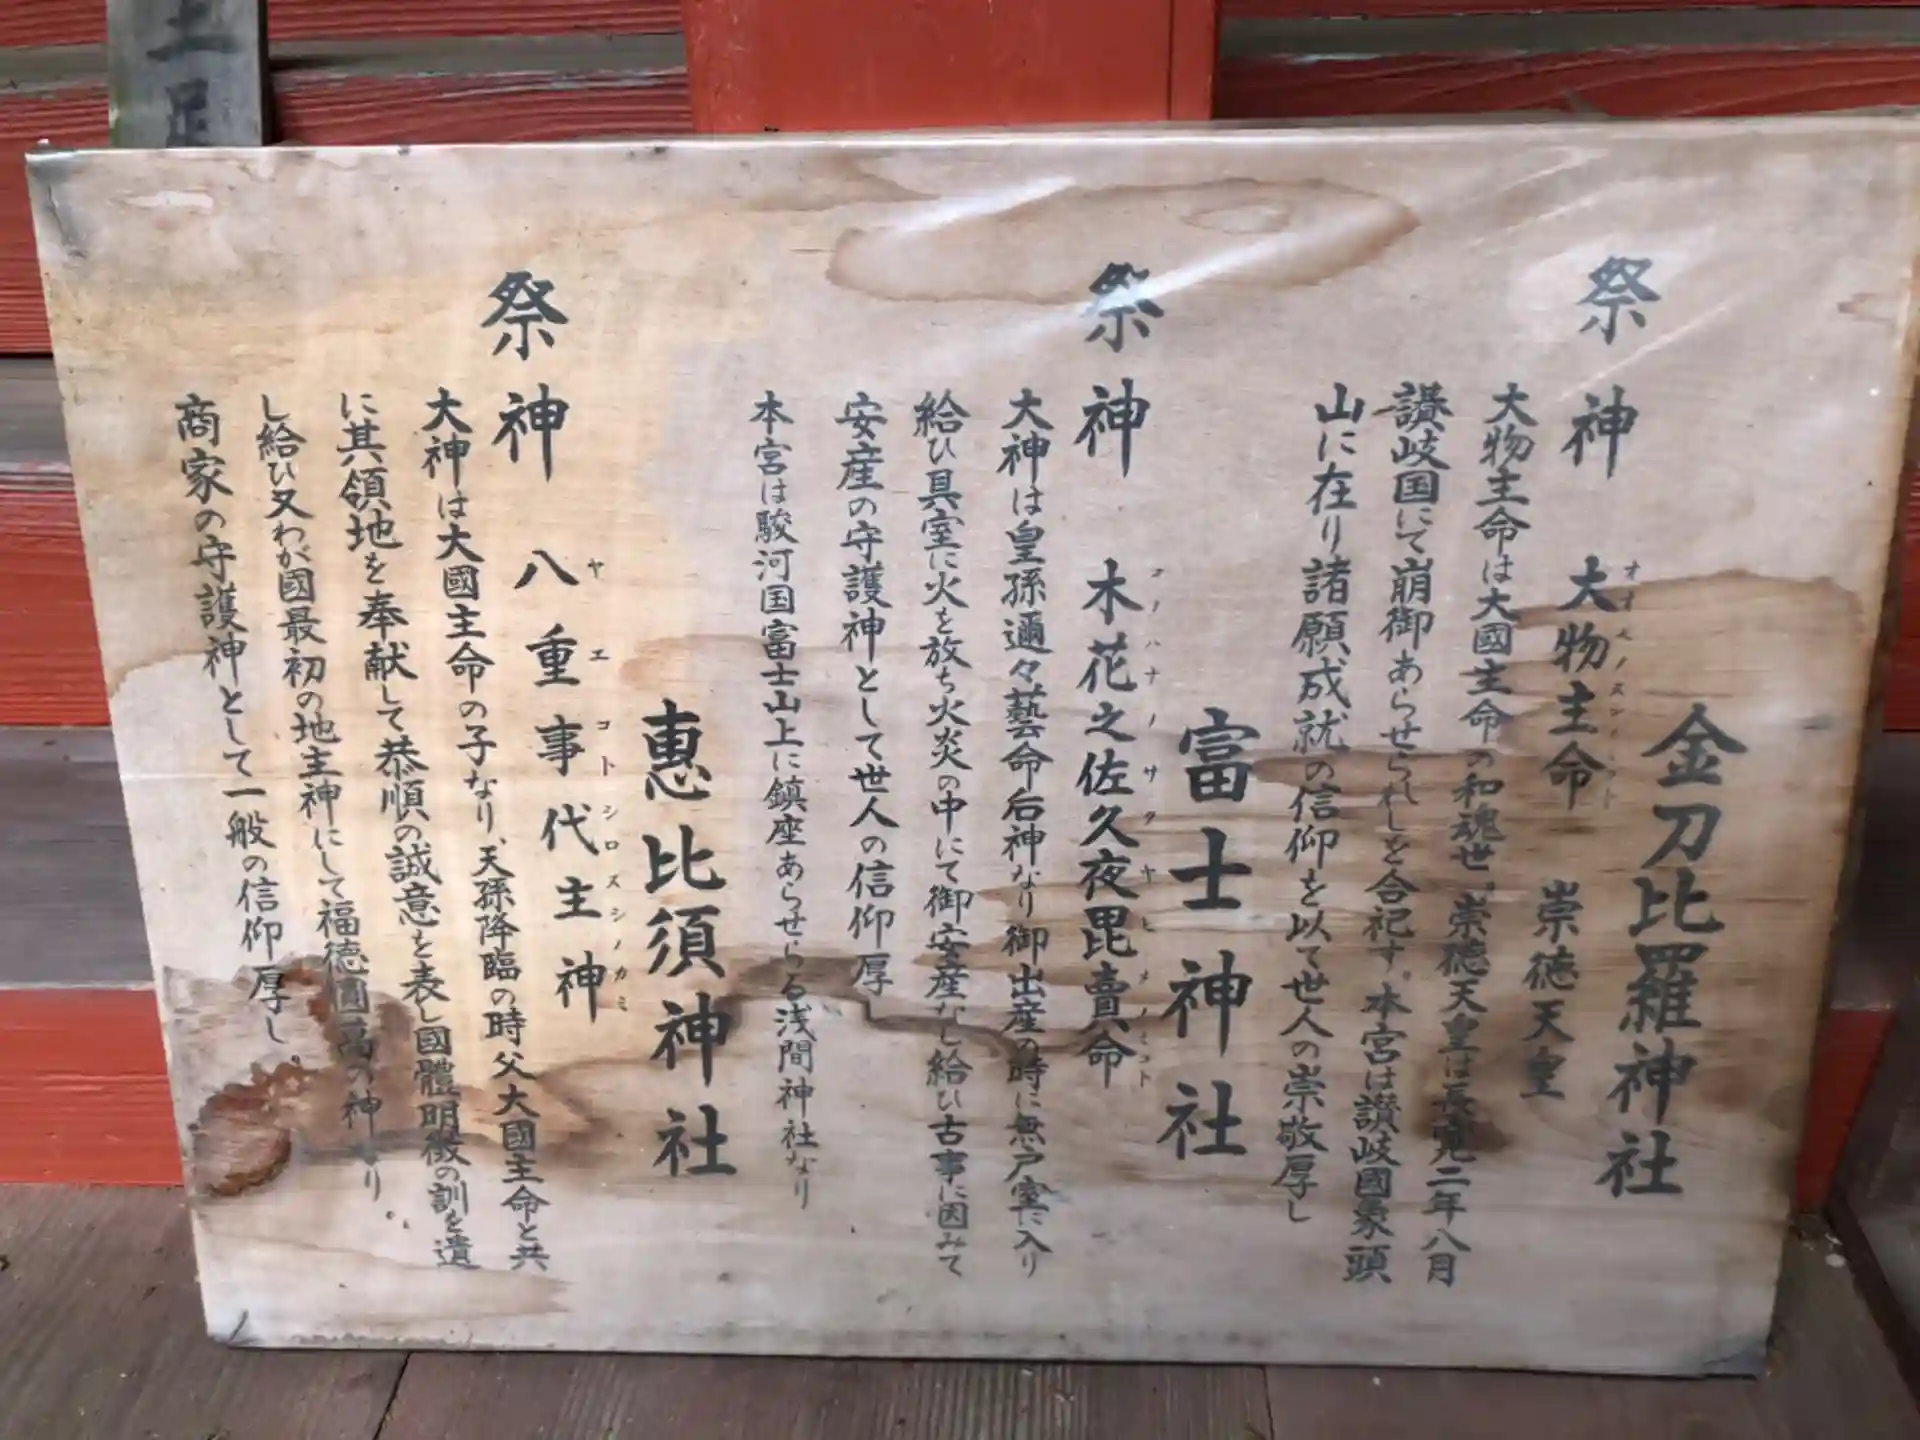 金刀比羅神社
祭神 大物主命 崇徳天皇
オオモノヌシノミコト
大物主命は大國主命の和魂世。崇徳天皇は長寛二年八月
讃岐国にて崩御あらせられしを合祀す。本宮は讃岐國象頭
山に在り諸願成就の信仰を以て世人の崇敬厚し
富士神社
祭神 木花之佐久夜毘賣命
コノハナノサクヤヒメノミコト
大神は皇孫邇々藝命后神なり御出産の時に無戸室に入り
給ひ具室に火を放ち火炎の中にて御安産なし給ひ古事に因みて
安産の守護神として世人の信仰厚し
本宮は駿河国富士山上に鎮座あらせらる浅間神社なり
惠比須神社
祭神 八重事代主神
ヤエコトシロヌシノカミ
大神は大國主命の子なり、天孫降臨の時父大國主命と共
に其領地を奉献して恭順の誠意を表し國體明徴の訓を遺
し給ひ又わが國最初の地主神にして福徳圓満の神なり。
商家の守護神として一般の信仰厚し。
土足